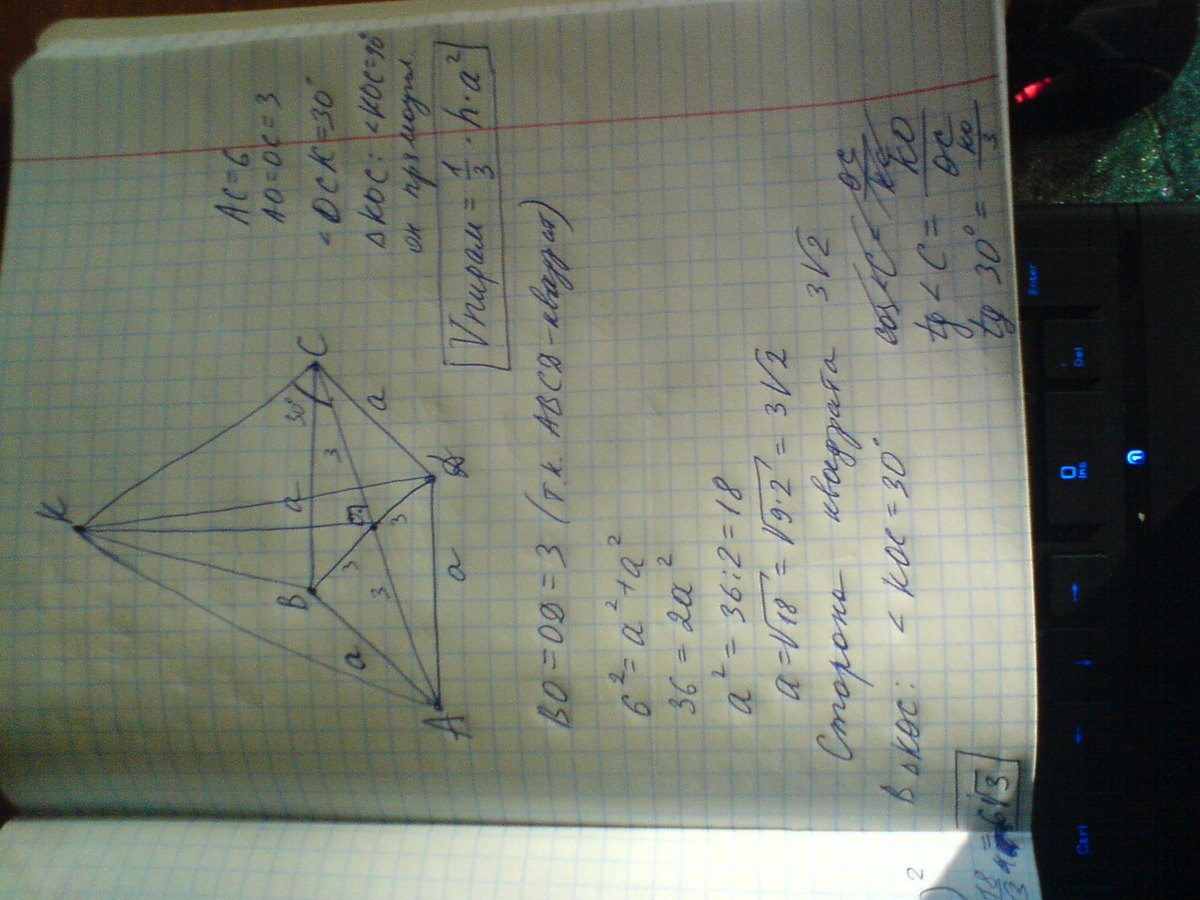 K
B
C
A
D
30°
a
3
a
3
3
3
a
a
AC=6
AO=OC=3
<OCK=30°
△KOC: <KOC=90°
он прямоугол.
Vпирам = 1/3 · h · a²
BO=OD=3 (т.к. ABCD-квадрат)
6²=a²+a²
36=2a²
a²=36:2=18
a=√18=√9·2=3√2
Сторона квадрата 3√2
В △KOC: <KOC=30°
cos<C=OC/KC
tg<C=KO/OC
tg 30°=KO/3
=6√3
2
Enter
Del
Ins
Ctrl
→
↓
←